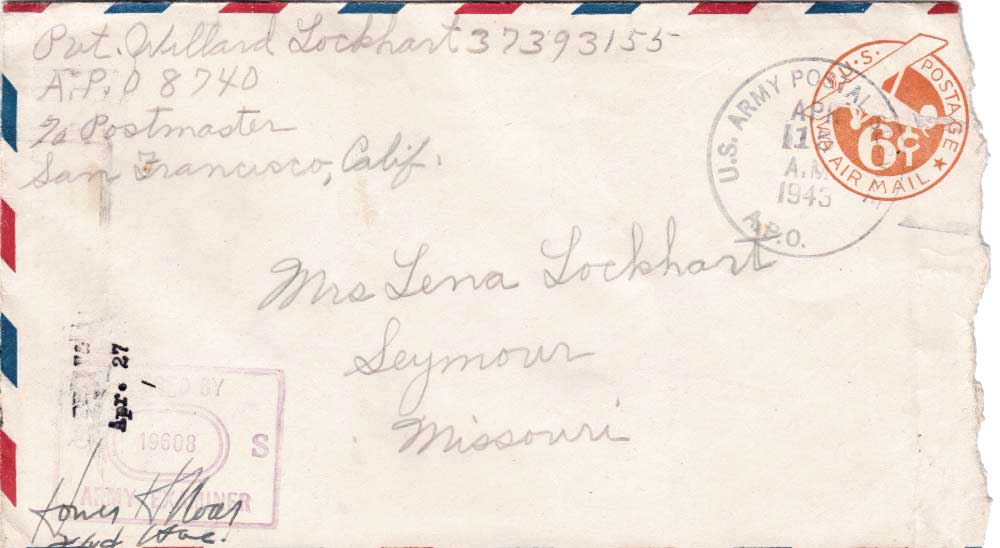 Pvt. Willard Lockhart 37393155
A.P.O 8740
c/o Postmaster
San Francisco, Calif.
U.S. ARMY POSTAL
APR
11
A.M
1943
A.P.O.
U.S. POSTAGE
6¢
VIA AIR MAIL
Mrs Lena Lockhart
Seymour
Missouri
Apr. 27
BY
19608
S
ARMY EXAMINER